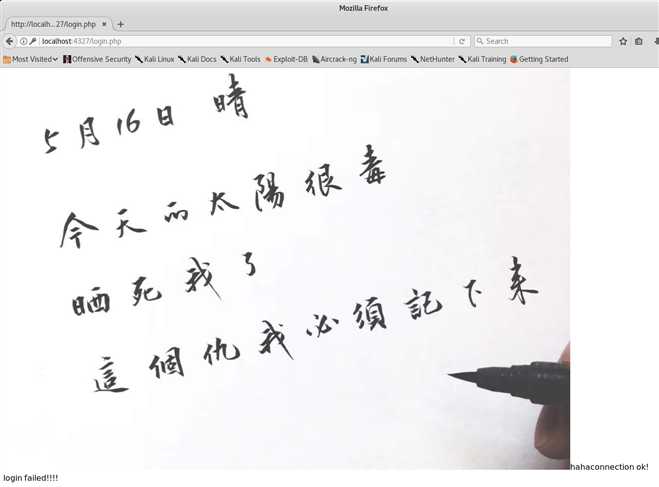 Mozilla Firefox
http://localh...27/login.php
localhost:4327/login.php
Search
Most Visited Offensive Security Kali Linux Kali Docs Kali Tools Exploit-DB Aircrack-ng Kali Forums NetHunter Kali Training Getting Started
5月16日 晴
今天的太陽很毒
晒死我了
這個仇我必須記下來
hahaconnection ok!
login failed!!!!